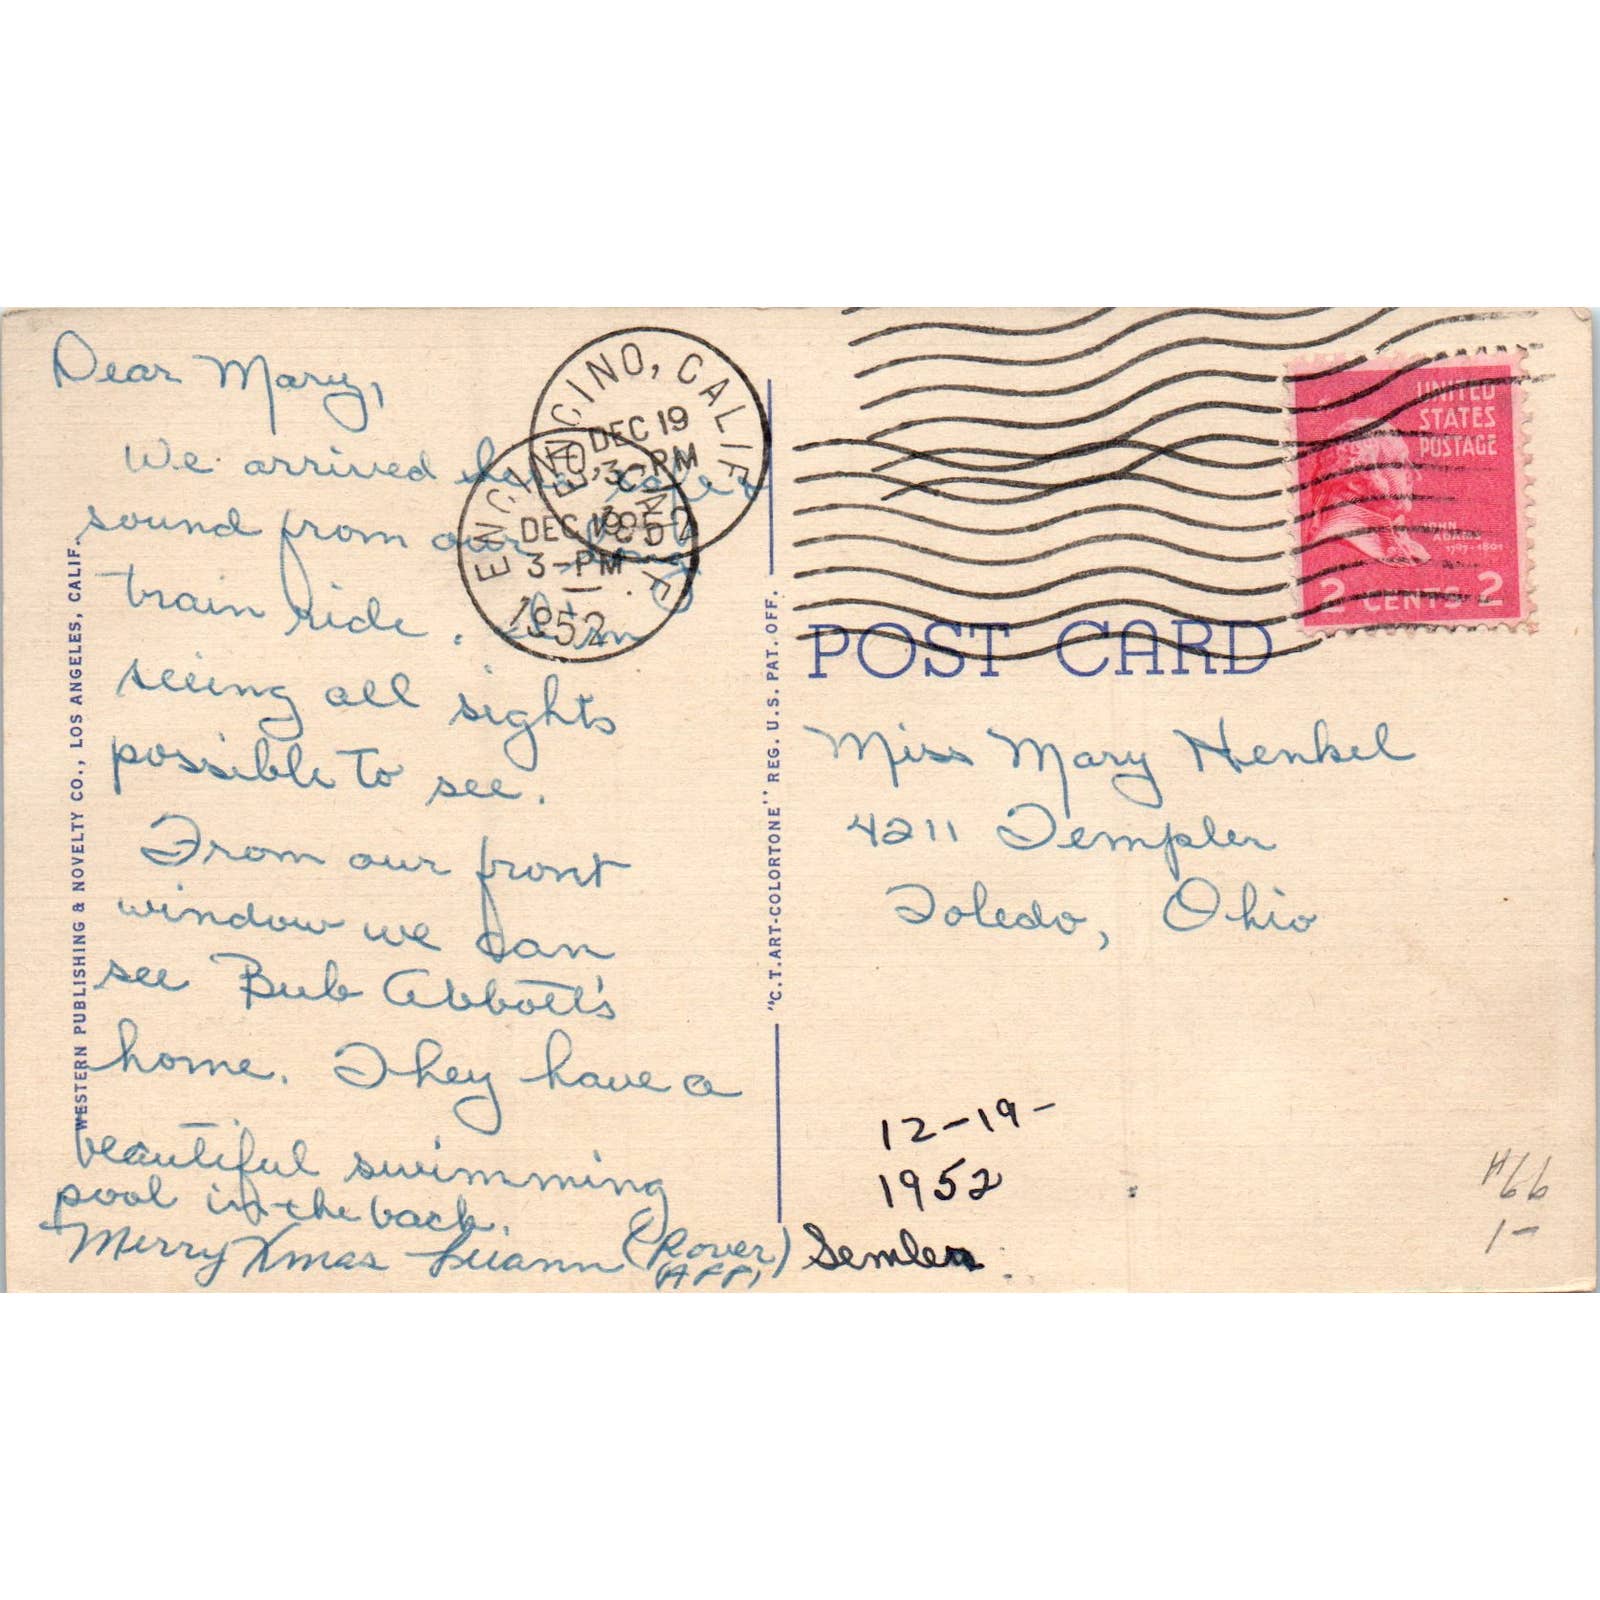 Dear Mary,
We arrived here safe &
sound from our long
train ride. I'm
seeing all sights
possible to see.
From our front
window we can
see Bub Abbott's
home. They have a
beautiful swimming
pool in the back.
Merry Xmas Luann (Rover) Semler
AFF,
WESTERN PUBLISHING & NOVELTY CO., LOS ANGELES, CALIF.
ENCINO, CALIF.
DEC 19
3-PM
1952
ENCINO, CALIF.
DEC 19
3-PM
1952
"C.T. ART-COLORTONE" REG. U.S. PAT. OFF.
UNITED
STATES
POSTAGE
JOHN
ADAMS
1797-1801
2 CENTS 2
POST CARD
Miss Mary Henkel
4211 Templer
Toledo, Ohio
12-19-
1952
#66
1-